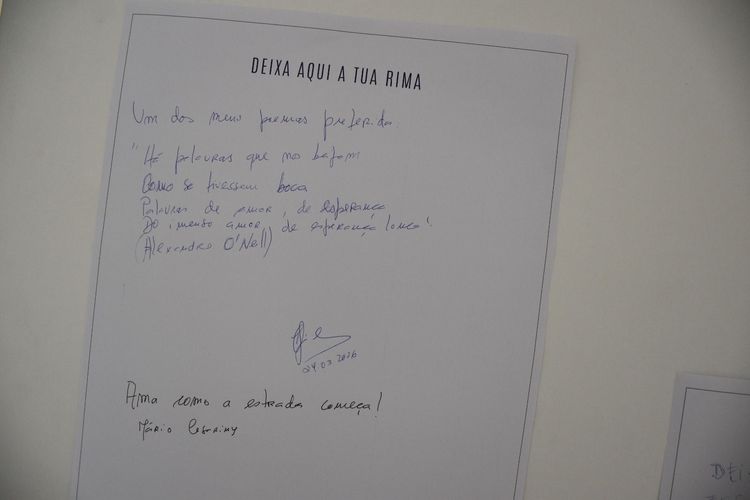 DEIXA AQUI A TUA RIMA
Um dos meus poemas preferidos:
"Há palavras que nos bafam
Como se tivessem boca
Palavras de amor, de esperança
Do imenso amor, de esperança louca".
(Alexandre O'Neill)
24.03.2026
Ama como a estrada começa!
Mário Cesariny
DEI